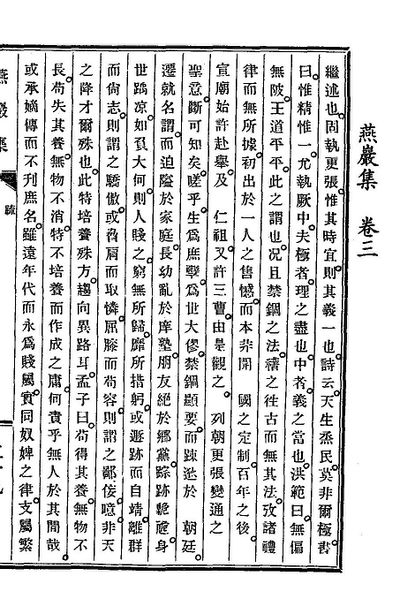 燕巖集 卷三
繼述也。固執更張。惟其時宜。則其義一也。詩云。天生烝民。莫非爾極。書
曰。惟精惟一。允執厥中。夫極者。理之盡也。中者。義之當也。洪範曰。無偏
無陂。王道平平。此之謂也。况且禁錮之法。稽之往古而無其法。攷諸禮
律而無所據。初出於一人之售憾。而本非開 國之定制。百年之後。
宣廟始許赴擧。及 仁祖。又許三曹。由是觀之。 列朝更張變通之
聖意。斷可知矣。嗟乎。生爲庶孼。爲世大僇。禁錮顯要。而踈迯於 朝廷。
遷就名謂。而迫隘於家庭。長幼亂於庠塾。朋友絶於鄕黨。踪跡臲卼。身
世踽凉。如負大何。則人賤之。窮無所歸。靡所措躬。或遯跡而自靖。離群
而尙志。則謂之驕傲。或脅肩而取憐。屈膝而苟容。則謂之鄙佞。噫。非天
之降才爾殊也。此特培養殊方。趨向異路耳。孟子曰。苟得其養。無物不
長。苟失其養。無物不消。特不培養而作成之。庸何貴乎無人於其間哉。
或承嫡傳而不列庶名。雖遠年代而永爲賤屬。實同奴婢之律。支屬繁
燕巖集
疏